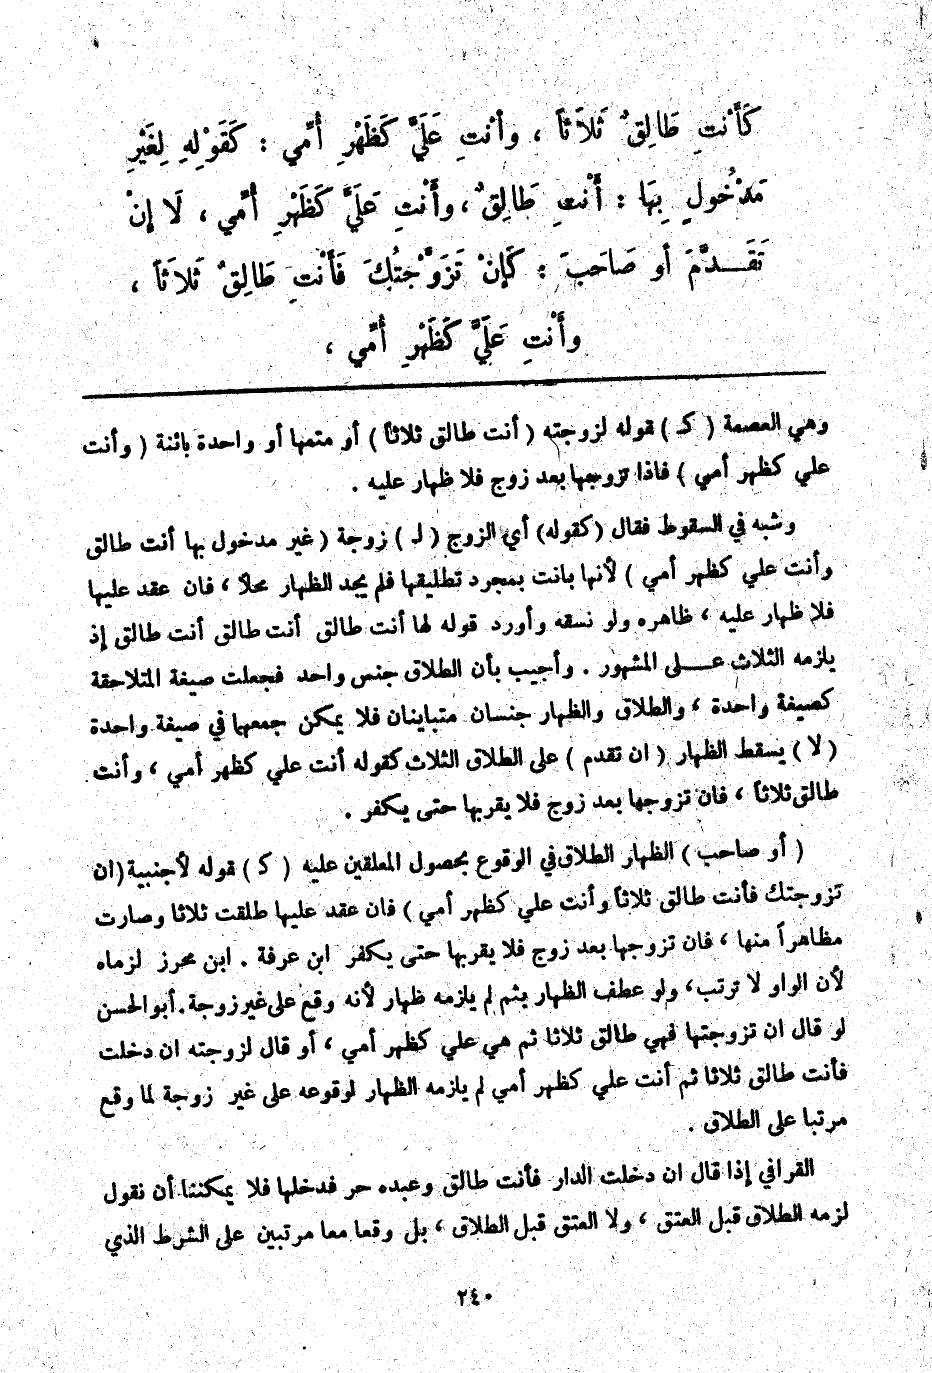 كَأَنْتِ طَالِقٌ ثَلَاثاً ، وأنْتِ عَلَيَّ كَظَهْرِ أُمِّي : كَقَوْلِهِ لِغَيْرِ
مَدْخُولٍ بِهَا : أَنْتِ طَالِقٌ ، وأَنْتِ عَلَيَّ كَظَهْرِ أُمِّي ، لَا إنْ
تَقَدَّمَ أو صَاحَبَ : كَإنْ تَزَوَّجْتُكِ فَأَنْتِ طَالِقٌ ثَلَاثَاً ،
وأَنْتِ عَلَيَّ كَظَهْرِ أُمِّي ،
وهي العصمة ( كـ ) قوله لزوجته ( أنت طالق ثلاثاً ) أو متمها أو واحدة بائنة ( وأنت
علي كظهر أمي ) فاذا تزوجها بعد زوج فلا ظهار عليه .
وشبه في السقوط فقال (كقوله) أي الزوج ( لـ ) زوجة ( غير مدخول بها أنت طالق
وأنت علي كظهر أمي ) لأنها بانت بمجرد تطليقها فلم يجد الظهار محلاً ، فان عقد عليها
فلا ظهار عليه ، ظاهره ولو نسقه وأورد قوله لها أنت طالق أنت طالق أنت طالق إذ
يلزمه الثلاث عـــلى المشهور . وأجيب بأن الطلاق جنس واحد فجعلت صيغة المتلاحقة
كصيغة واحدة ، والطلاق والظهار جنسان متباينان فلا يمكن جمعها في صيغة واحدة
( لا ) يسقط الظهار ( ان تقدم ) على الطلاق الثلاث كقوله أنت علي كظهر أمي ، وأنت
طالق ثلاثاً ، فان تزوجها بعد زوج فلا يقربها حتى يكفر .
( أو صاحب ) الظهار الطلاق في الوقوع بحصول المعلقين عليه ( كـ ) قوله لأجنبية (ان
تزوجتك فأنت طالق ثلاثاً وأنت علي كظهر أمي ) فان عقد عليها طلقت ثلاثا وصارت
مظاهراً منها ، فان تزوجها بعد زوج فلا يقربها حتى يكفر ابن عرفة . ابن محرز لزماه
لأن الواو لا ترتب، ولو عطف الظهار بثم لم يلزمه ظهار لأنه وقع على غير زوجة. أبو الحسن
لو قال ان تزوجتها فهي طالق ثلاثا ثم هي علي كظهر أمي ، أو قال لزوجته ان دخلت
فأنت طالق ثلاثا ثم أنت علي كظهر أمي لم يلزمه الظهار لوقوعه على غير زوجة لما وقع
مرتبا على الطلاق .
القرافي إذا قال ان دخلت الدار فأنت طالق وعبده حر فدخلها فلا يمكننا أن نقول
لزمه الطلاق قبل العتق ، ولا العتق قبل الطلاق ، بل وقعا معا مرتبين على الشرط الذي
٢٤٠